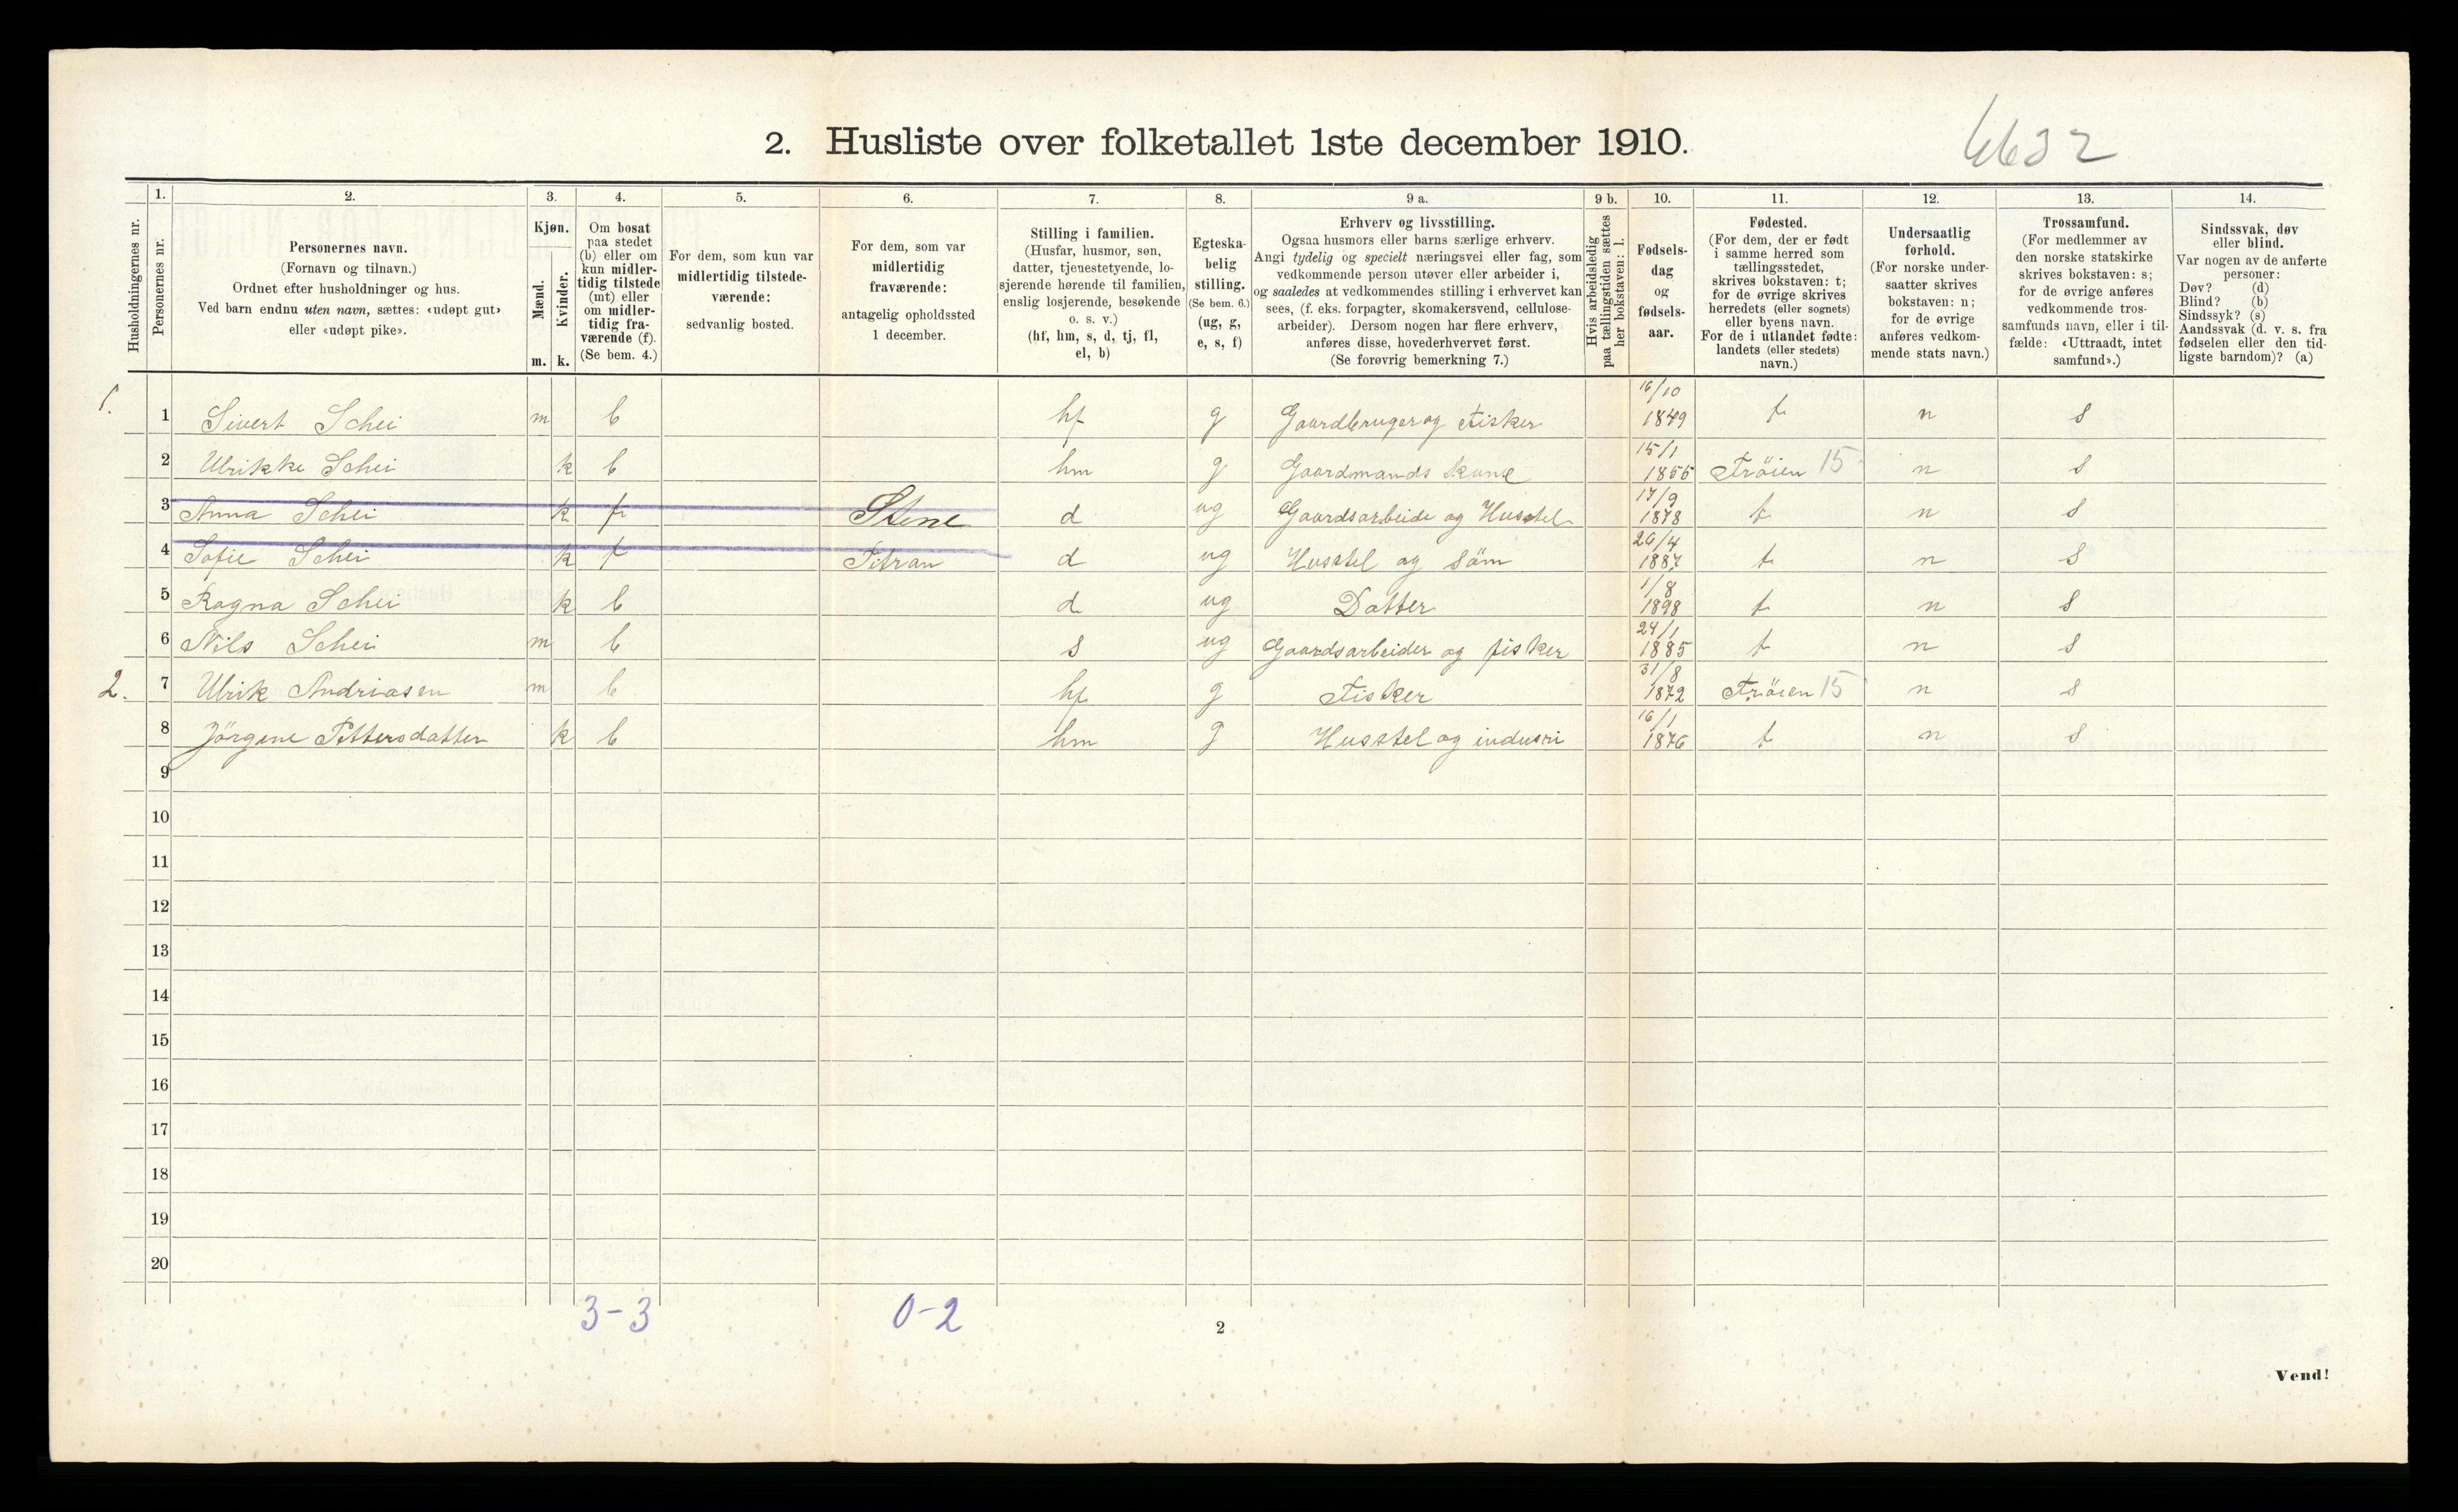 2. Husliste over folketallet 1ste december 1910.
6632
Husholdningernes nr.
1.
Personernes nr.
2.
Personernes navn.
(Fornavn og tilnavn.)
Ordnet efter husholdninger og hus.
Ved barn endnu uten navn, sættes: «udøpt gut»
eller «udøpt pike».
3.
Kjøn.
Mænd.
Kvinder.
m. k.
4.
Om bosat
paa stedet
(b) eller om
kun midler-
tidig tilstede
(mt) eller
om midler-
tidig fra-
værende (f).
(Se bem. 4.)
5.
For dem, som kun var
midlertidig tilstede-
værende:
sedvanlig bosted.
6.
For dem, som var
midlertidig
fraværende:
antagelig opholdssted
1 december.
7.
Stilling i familien.
(Husfar, husmor, søn,
datter, tjenestetyende, lo-
sjerende hørende til familien,
enslig losjerende, besøkende
o. s. v.)
(hf, hm, s, d, tj, fl,
el, b)
8.
Egteska-
belig
stilling.
(Se bem. 6.)
(ug, g,
e, s, f)
9 a.
Erhverv og livsstilling.
Ogsaa husmors eller barns særlige erhverv.
Angi tydelig og specielt næringsvei eller fag, som
vedkommende person utøver eller arbeider i,
og saaledes at vedkommendes stilling i erhvervet kan
sees, (f. eks. forpagter, skomakersvend, cellulose-
arbeider). Dersom nogen har flere erhverv,
anføres disse, hovederhvervet først.
(Se forøvrig bemerkning 7.)
9 b.
Hvis arbeidsledig
paa tællingstiden sættes
her bokstaven: l.
10.
Fødsels-
dag
og
fødsels-
aar.
11.
Fødested.
(For dem, der er født
i samme herred som
tællingsstedet,
skrives bokstaven: t;
for de øvrige skrives
herredets (eller sognets)
eller byens navn.
For de i utlandet fødte:
landets (eller stedets)
navn.)
12.
Undersaatlig
forhold.
(For norske under-
saatter skrives
bokstaven: n;
for de øvrige
anføres vedkom-
mende stats navn.)
13.
Trossamfund.
(For medlemmer av
den norske statskirke
skrives bokstaven: s;
for de øvrige anføres
vedkommende tros-
samfunds navn, eller i til-
fælde: «Uttraadt, intet
samfund».)
14.
Sindssvak, døv
eller blind.
Var nogen av de anførte
personer:
Døv? (d)
Blind? (b)
Sindssyk? (s)
Aandssvak (d. v. s. fra
fødselen eller den tid-
ligste barndom)? (a)
1. 1 Sivert Schei m b hf g Gaardbruger og Fisker 16/10 1849 t n s
2 Ulrikke Schei k b hm g Gaardmands kone 15/1 1855 Frøien 15 n s
3 Anna Schei k f Stene d ug Gaardsarbeide og Husstel 17/9 1878 t n s
4 Sofie Schei k f Titran d ug Husstel og søm 26/4 1887 t n s
5 Ragna Schei k b d ug Datter 1/8 1898 t n s
6 Nils Schei m b s ug Gaardsarbeider og fisker 24/1 1885 t n s
2. 7 Ulrik Andriasen m b hf g Fisker 31/8 1872 Frøien 15 n s
8 Jörgene Pettersdatter k b hm g Husstel og indusri 16/1 1876 t n s
9
10
11
12
13
14
15
16
17
18
19
20
3-3 0-2
2
Vend!